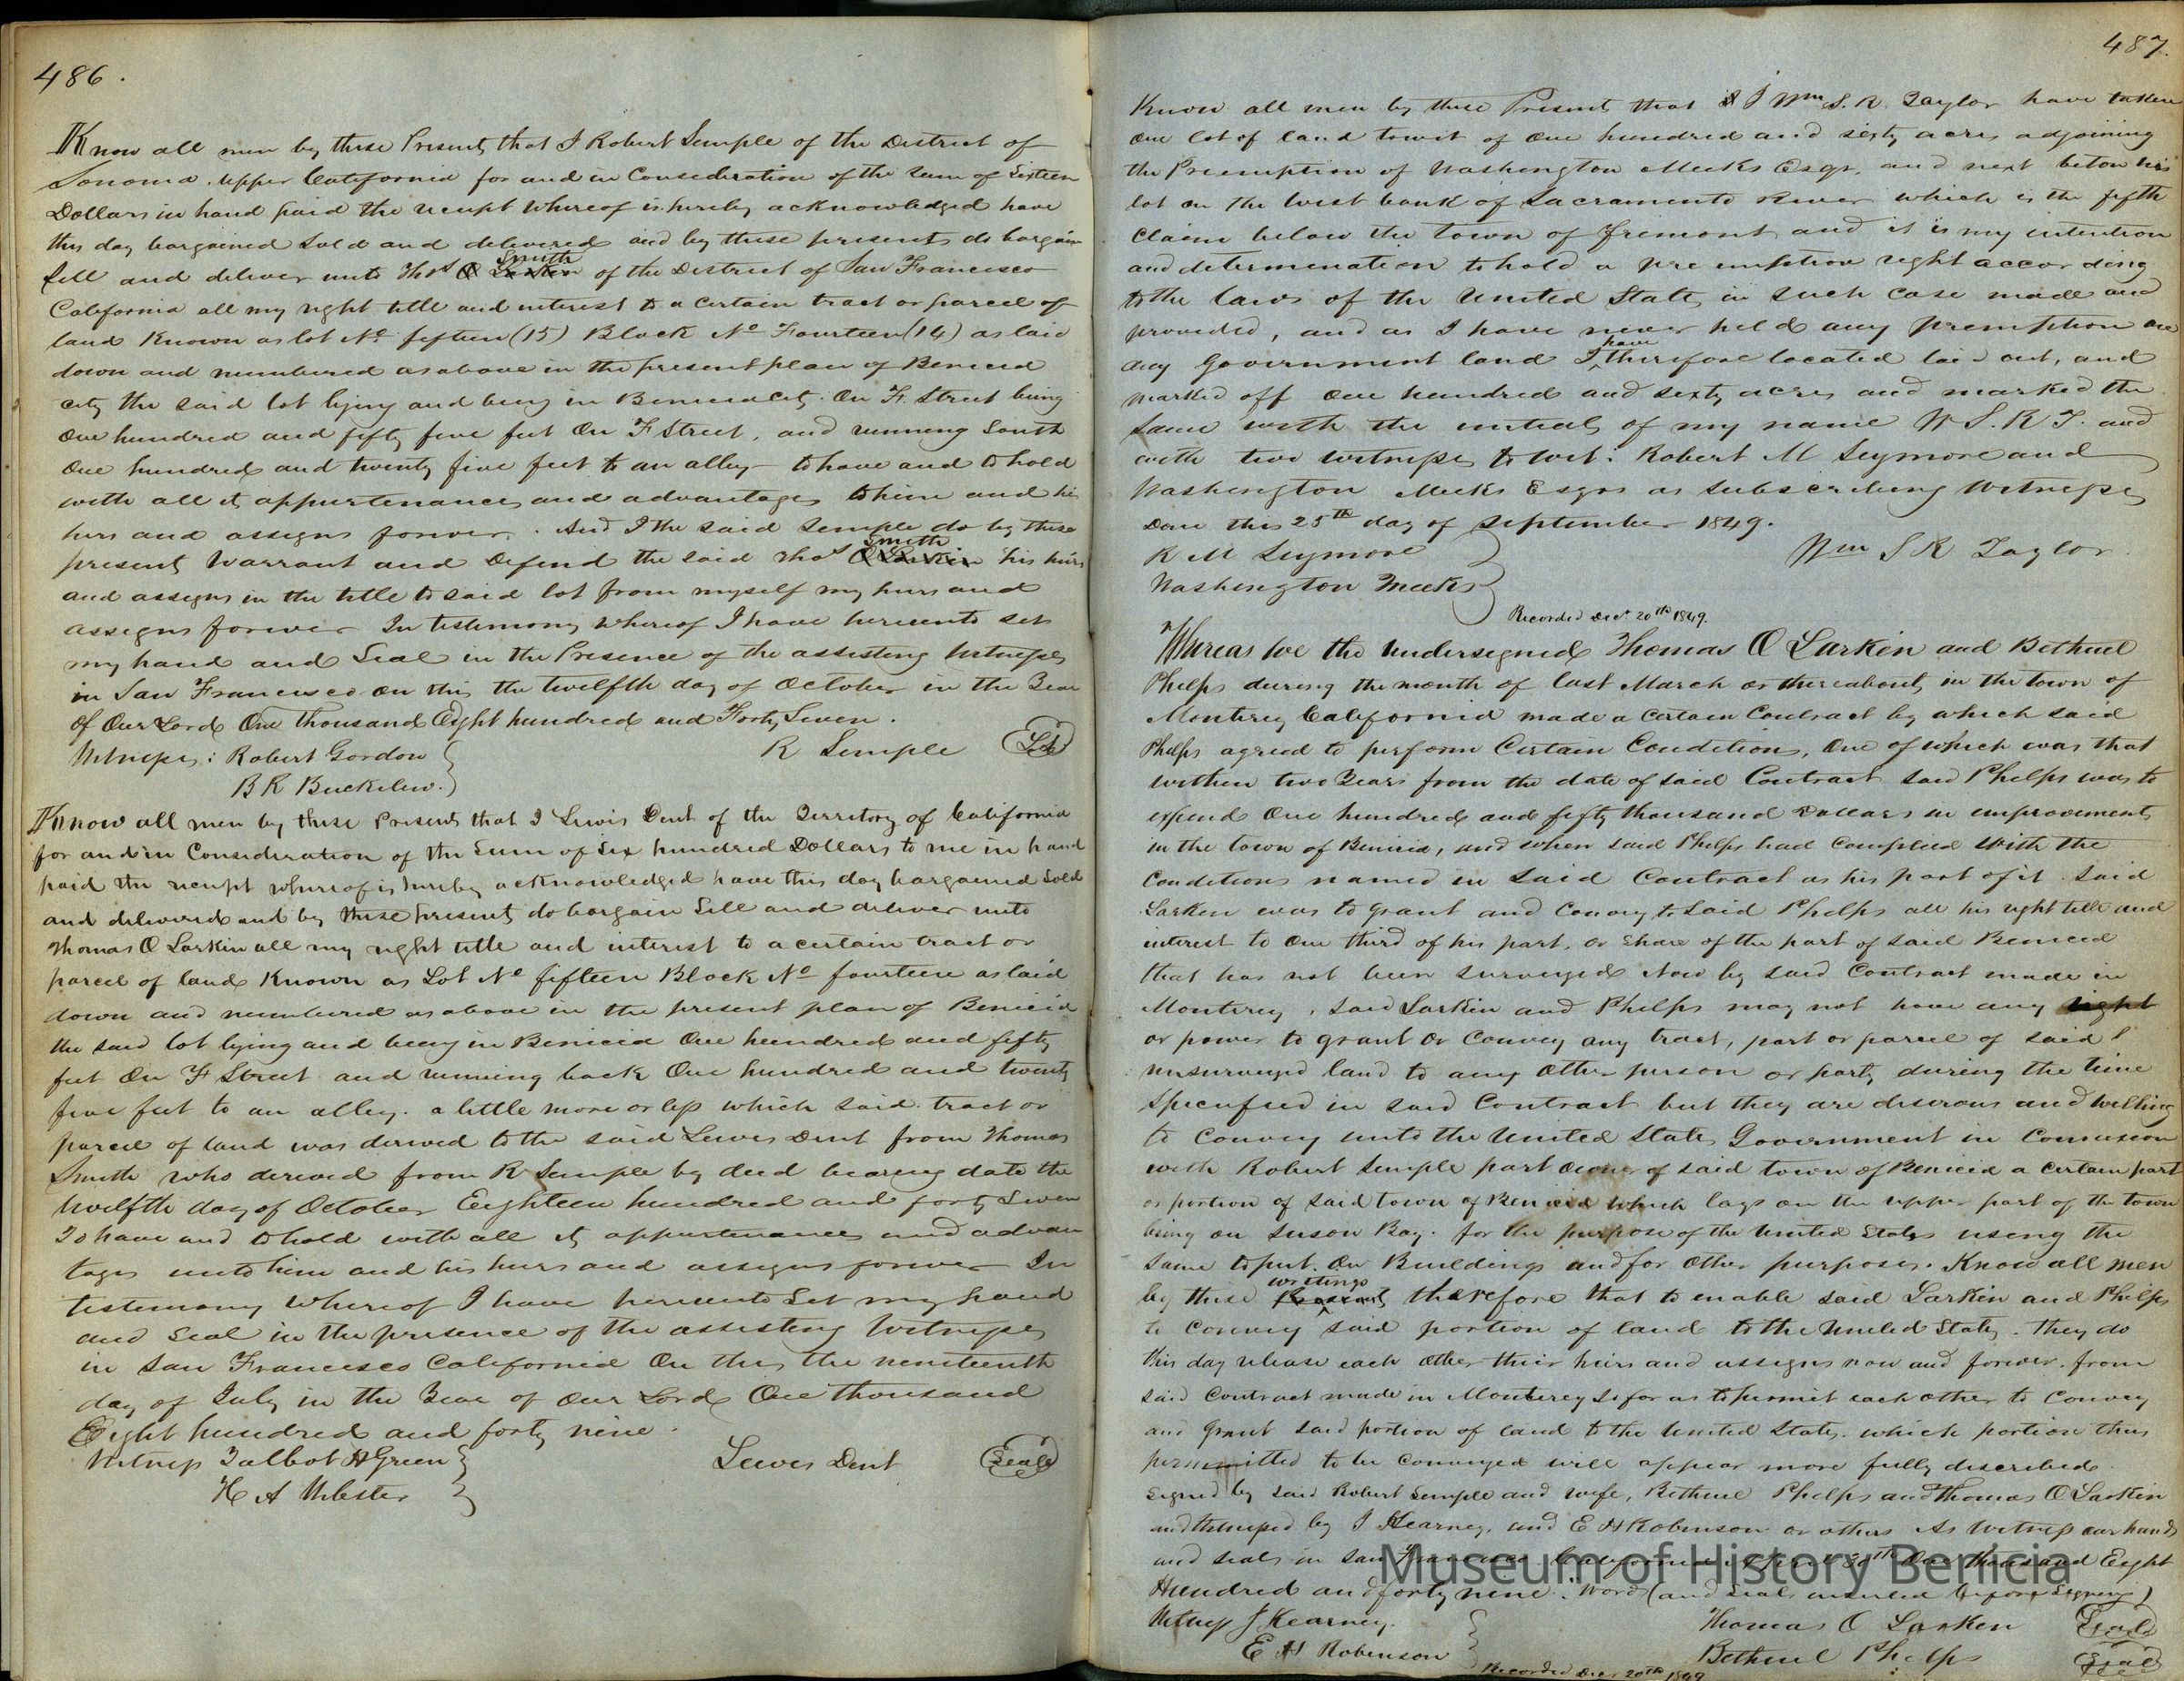 486.
Know all men by these Presents that I Robert Semple of the District of
Sonoma. Upper California for and in Consideration of the sum of Sixteen
Dollars in hand paid the receipt whereof is hereby acknowledged have
this day bargained sold and delivered and by these presents do bargain
Sell and deliver unto Thos O Larkin Smith of the District of San Francisco
California all my right title and interest to a certain tract or parcel of
land Known as lot No fifteen (15) Block No Fourteen (14) as laid
down and numbered as above in the present plan of Benicia
city the said lot lying and being in Benicia City. On F. Street being
One hundred and fifty five feet On F Street, and running South
One hundred and twenty five feet to an alley - to have and to hold
with all its appurtenances and advantages to him and his
heirs and assigns forever. And I the said Semple do by these
presents Warrant and Defend the said Thos O Larkin Smith his heirs
and assigns in the title to said lot from myself my heirs and
assigns forever In testimony whereof I have hereunto set
my hand and Seal in the Presence of the assisting Witnesses
in San Francisco on this the twelfth day of October in the Year
of Our Lord One thousand Eight hundred and Forty Seven.
Witnesses: Robert Gordon
R Semple
B R Buckelew.
Know all men by these Presents that I Lewis Dent of the Territory of California
for and in Consideration of the Sum of Six hundred Dollars to me in hand
paid the receipt whereof is hereby acknowledged have this day bargained Sold
and delivered and by these Presents do bargain Sell and deliver unto
Thomas O Larkin all my right title and interest to a certain tract or
parcel of land Known as Lot No fifteen Block No fourteen as laid
down and numbered as above in the present plan of Benicia
the said lot lying and being in Benicia One hundred and fifty
feet On F Street and running back One hundred and twenty
five feet to an alley. a little more or less which said tract or
parcel of land was derived to the said Lewis Dent from Thomas
Smith who derived from R Semple by deed bearing date the
twelfth day of October Eighteen hundred and forty Seven
To have and to hold with all its appurtenances and advan
tages unto him and his heirs and assigns forever In
testimony Whereof I have hereunto Set my hand
and Seal in the presence of the assisting Witnesses
in San Francisco California On this the nineteenth
day of July in the Year of Our Lord One thousand
Eight hundred and forty nine.
Witness Talbot H Green
Lewis Dent Seal
H A Webster
487.
Know all men by these Presents that I Wm S. R. Taylor have taken
One lot of land towit of One hundred and sixty acres adjoining
the Preemption of Washington Meeks Esqr. and next below his
lot on the West bank of Sacramento River which is the fifth
Claim below the Town of Fremont and it is my intention
and determination to hold a pre emption right according
to the laws of the United States in such case made and
provided, and as I have never held any premption on
any Government land I have therefore located laid out, and
marked off One hundred and sixty acres and marked the
same with the initials of my name W S. R T. and
with two witnesses to wit: Robert M Seymore and
Washington Meeks Esqrs as subscribing Witnesses
Done this 25th day of September 1849.
R M Seymore
Wm S R Taylor.
Washington Meeks
Recorded Decr 20th 1849.
Whereas We the Undersigned Thomas O Larkin and Bethuel
Phelps during the month of last March or thereabouts in the town of
Monterey California made a certain Contract by which said
Phelps agreed to perform Certain Conditions, One of which was that
within two Years from the date of said Contract said Phelps was to
expend One hundred and fifty thousand Dollars in improvements
in the town of Benicia, and when said Phelps had Complied With the
Conditions named in Said Contract as his part of it. Said
Larkin was to grant and Convey to Said Phelps all his right title and
interest to One third of his part, or Share of the part of said Benicia
that has not been surveyed Now by said Contract made in
Monterey, said Larkin and Phelps may not have any right
or power to grant Or Convey any tract, part or parcel of said
unsurveyed land to any Other person or party during the time
Specified in said Contract but they are desirous and willing
to Convey unto the United States Government in
with Robert Semple part owner of said town of Benicia a certain part
or portion of said town of Benicia which lays on the upper part of the town
being on Suson Bay. for the purpose of the United States using the
same to put On Buildings and for Other purposes. Know all men
by these Presents writings therefore that to enable said Larkin and Phelps
to Convey said portion of land to the United States. they do
this day release each Other their heirs and assigns now and forever. from
said Contract made in Monterey So far as to permit each other to Convey
and grant said portion of land to the United States. which portion thus
permitted to be Conveyed will appear more fully described
signed by said Robert Semple and wife, Bethuel Phelps and Thomas O Larkin
and by J Kearney, and E H Robinson or others As Witness our hands
and seals in San Francisco California One thousand Eight
Hundred and forty nine. Words (and Seals inserted before signing)
Witness J Kearney.
Thomas O Larkin Seal
E H Robinson
Bethuel Phelps Seal
Recorded Decr 20th 1849
Museum of History Benicia